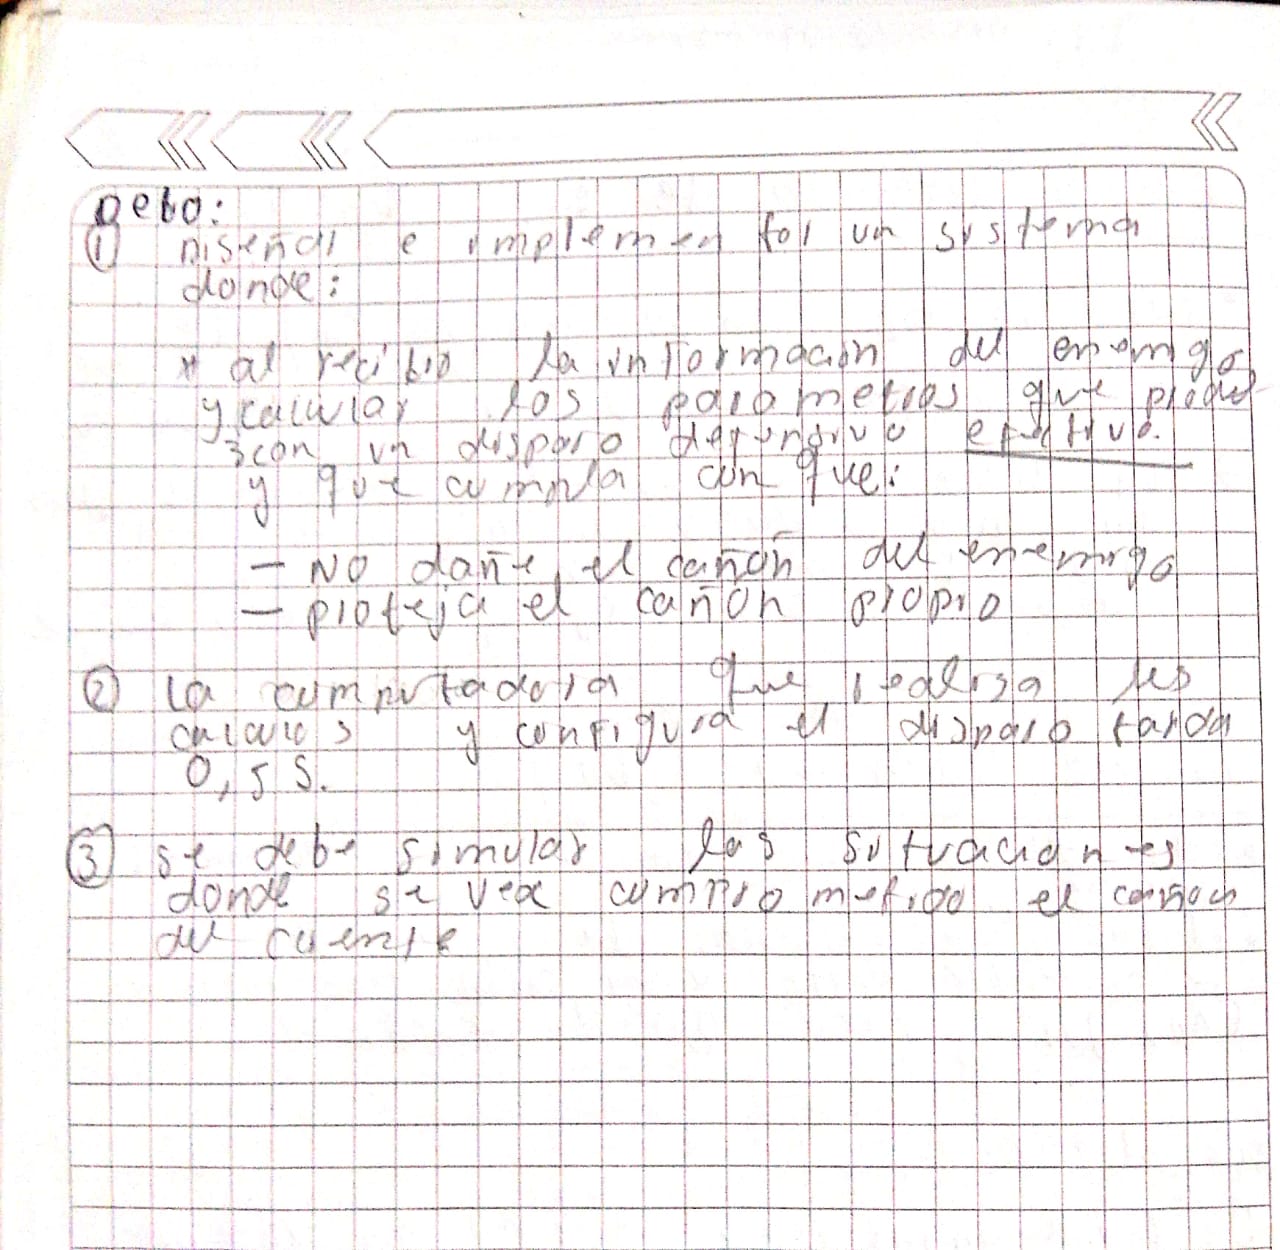 Debo:
① Diseñar e implementar un sistema
donde:
* al recibir la información del enemigo
y calcular los parametros que produ
zcan un disparo defensivo efectivo.
y que cumpla con que:
— NO dañe el cañón del enemigo
— proteja el cañon propio
② la computadora que realisa les
calculos y configura el disparo tarda
0,5 s.
③ se debe simular las situaciones
donde se vea comprometido el cañon
del cliente